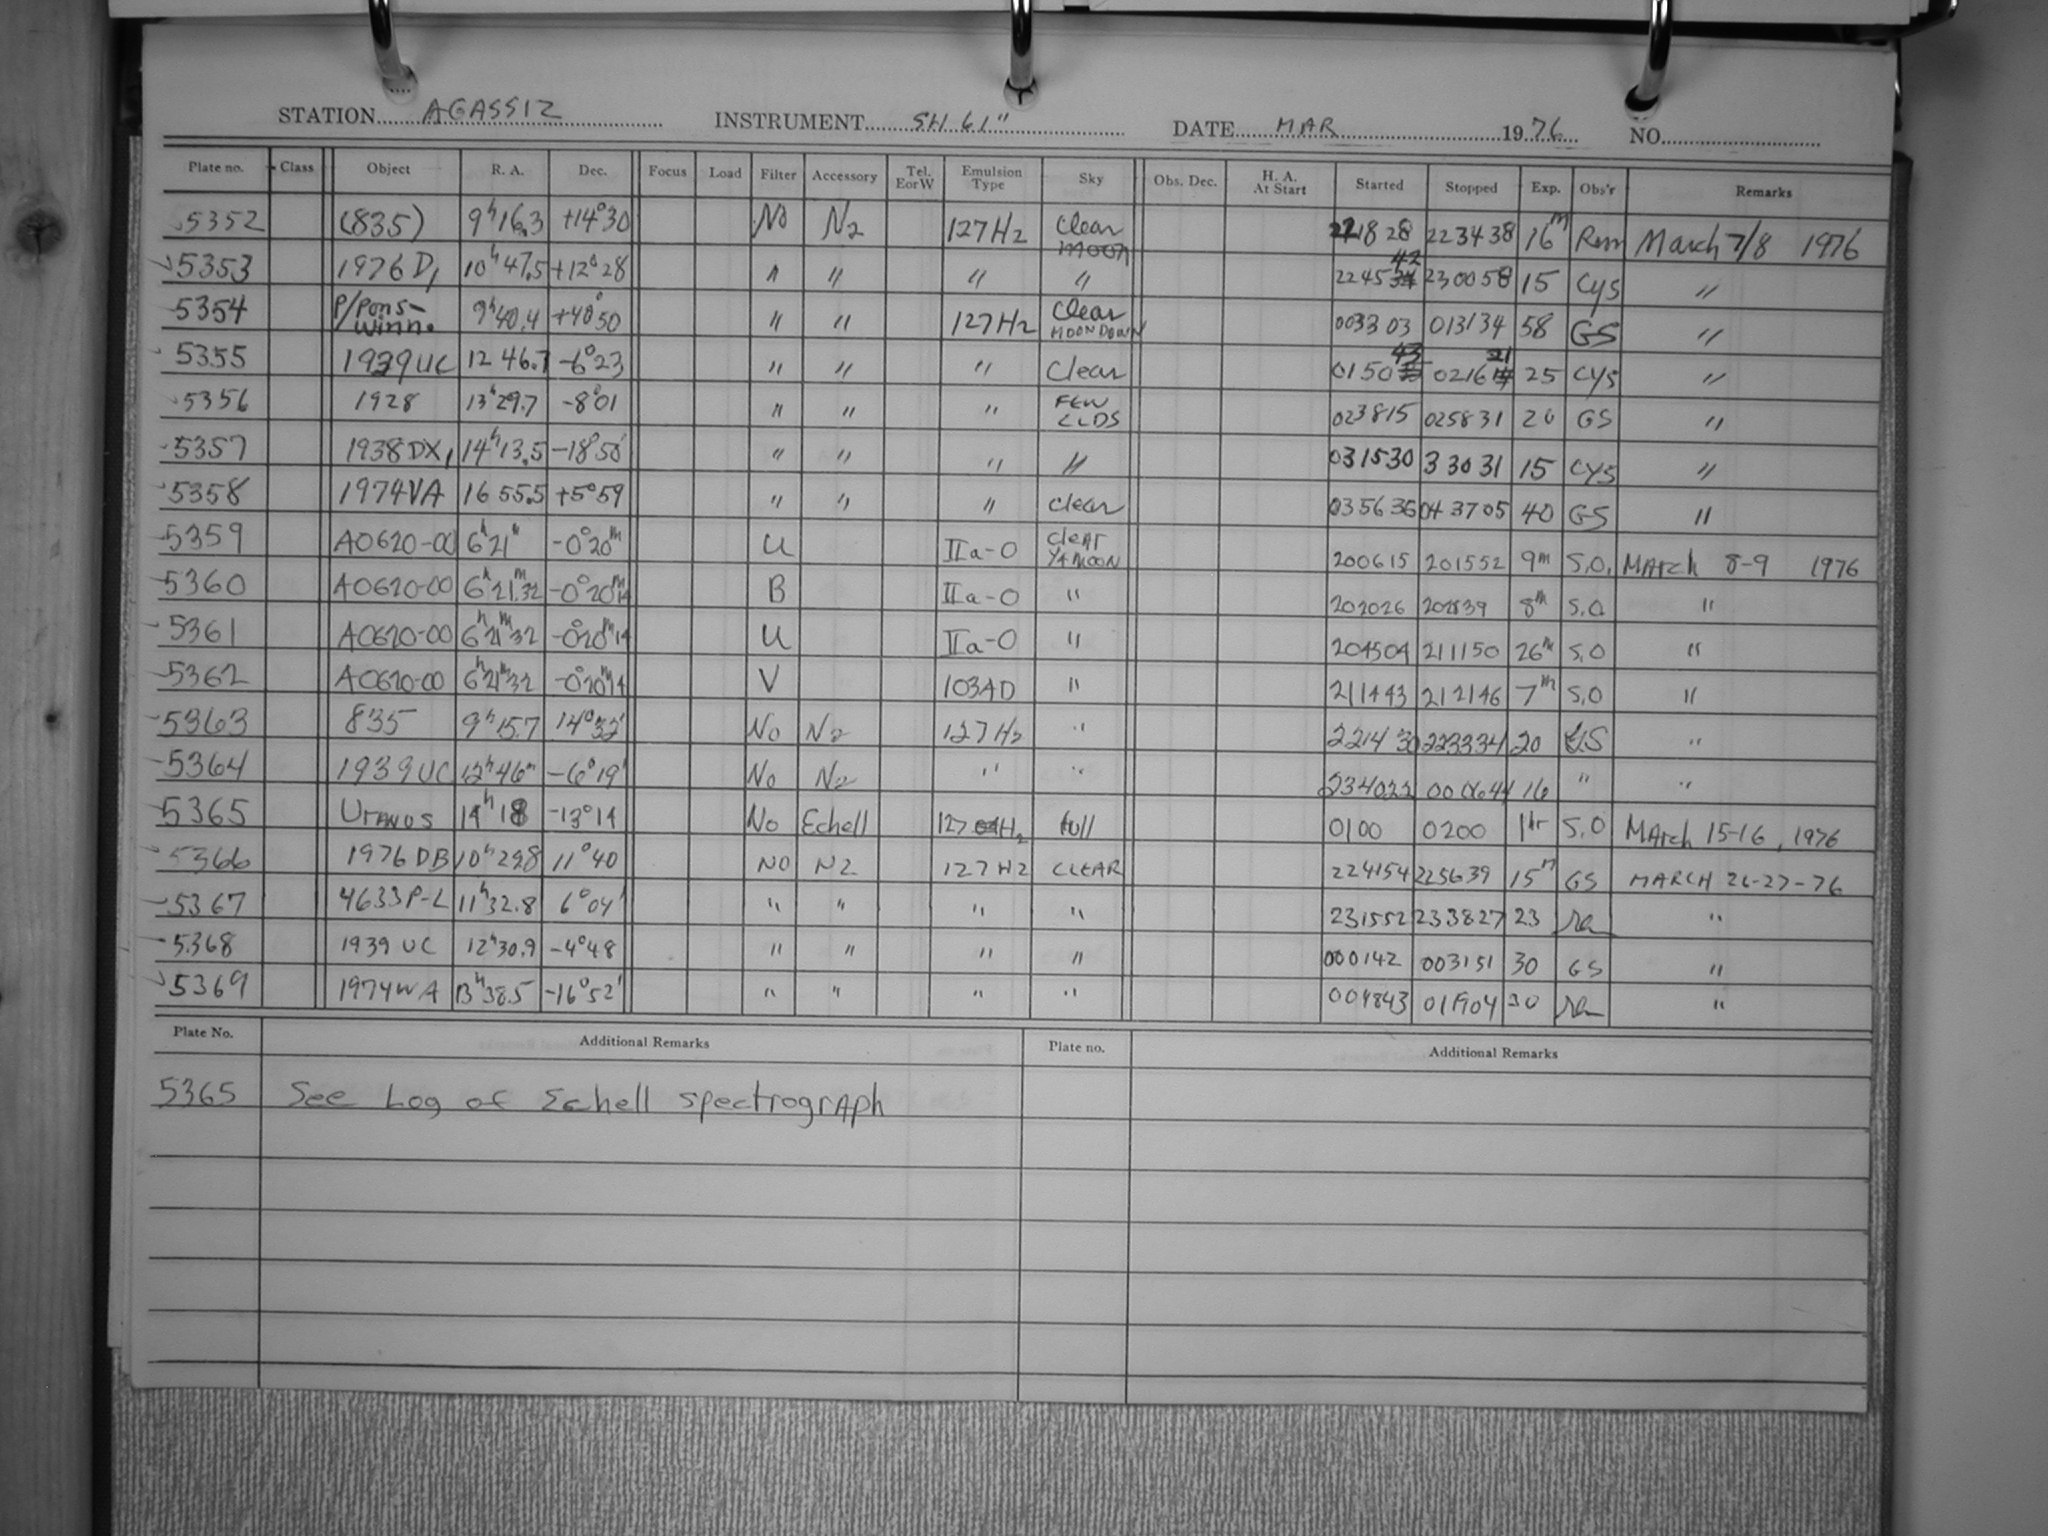 STATION AGASSIZ INSTRUMENT SH 61" DATE MAR 1976 NO.
Plate no. Class Object R. A. Dec. Focus Load Filter Accessory Tel. E or W Emulsion Type Sky Obs. Dec. H. A. At Start Started Stopped Exp. Obs'r Remarks
5352 (835) 9h16.3 +14°30 No N2 127H2 Clear 221828 223438 16m Rem March 7/8 1976
5353 1976 D1 10h47.5 +12°28 " " " " 224542 230058 15 CYS "
5354 P/Pons-Winn. 9h40.4 +40°50 " " 127H2 Clear MOON DOWN 003303 013134 58 GS "
5355 1939UC 12 46.7 -6°23 " " " Clear 015043 021621 25 CYS "
5356 1928 13h29.7 -8°01 " " " FEW CLDS 023815 025831 20 GS "
5357 1938DX1 14h13.5 -18°50' " " " " 031530 33031 15 CYS "
5358 1974VA 16 55.5 +5°59 " " " Clear 035636 043705 40 GS "
5359 A0620-00 6h21m -0°20m U IIa-O Clear 1/4 MOON 200615 201552 9m S.O. March 8-9 1976
5360 A0620-00 6h21m32 -0°20m14 B IIa-O " 202026 202839 8m S.O "
5361 A0620-00 6h21m32 -0°20m14 U IIa-O " 204504 211150 26m S.O "
5362 A0620-00 6h21m32 -0°20m14 V 103AD " 211443 212146 7m S.O "
5363 835 9h15.7 14°32' No N2 127H2 " 221430 223334 20 GS "
5364 1939UC 12h46m -6°19' No N2 " " 234022 16 " "
5365 Uranus 14h18 -13°14 No Echell 127 H2 full 0100 0200 1hr S.O March 15-16, 1976
5366 1976 DB 10h29.8 11°40 NO N2 127H2 CLEAR 224154 225639 15m GS MARCH 26-27-76
5367 4633P-L 11h32.8 6°04' " " " " 231552 233827 23 "
5368 1939 UC 12h30.9 -4°48 " " " " 000142 003151 30 GS "
5369 1974WA 13h38.5 -16°52' " " " " 004843 011904 30 "
Plate No. Additional Remarks Plate no. Additional Remarks
5365 See Log of Echell spectrograph